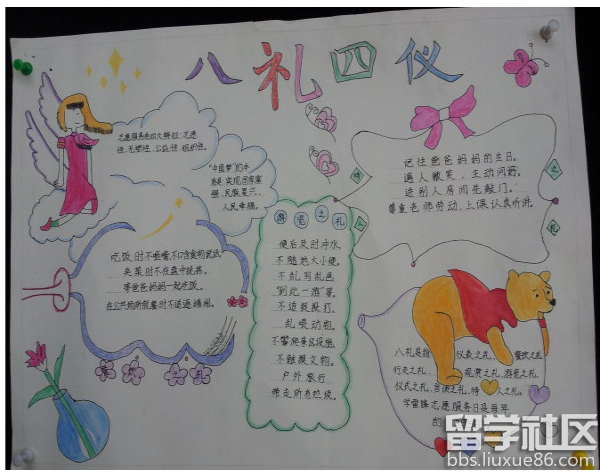 八礼四仪
志愿服务的四大特征:志愿
性、无偿性、公益性、组织性。
"中国梦"的本
质是实现国家富
强、民族复兴、
人民幸福。
记住爸爸妈妈的生日。
遇人微笑,主动问好。
进别人房间先敲门。
尊重老师劳动,上课认真听讲。
待
人
之
礼
吃饭时不咂嘴,不口含食物说话。
夹菜时不在盘中挑拣。
等爸爸妈妈一起吃饭。
在公共场所就餐时不追逐嬉闹。
游览之礼
便后及时冲水
不随地大小便。
不乱写乱画
"到此一游"等。
不追捉殴打、
乱喂动物。
不攀爬景区设施
不触摸文物。
户外旅行
带走所有垃圾。
八礼是指 仪表之礼、餐饮之礼
行走之礼、观赏之礼、游览之礼、
仪式之礼、言谈之礼、待人之礼。
学雷锋志愿服务日是每年
的
留学社区
bbs.liuxue86.com